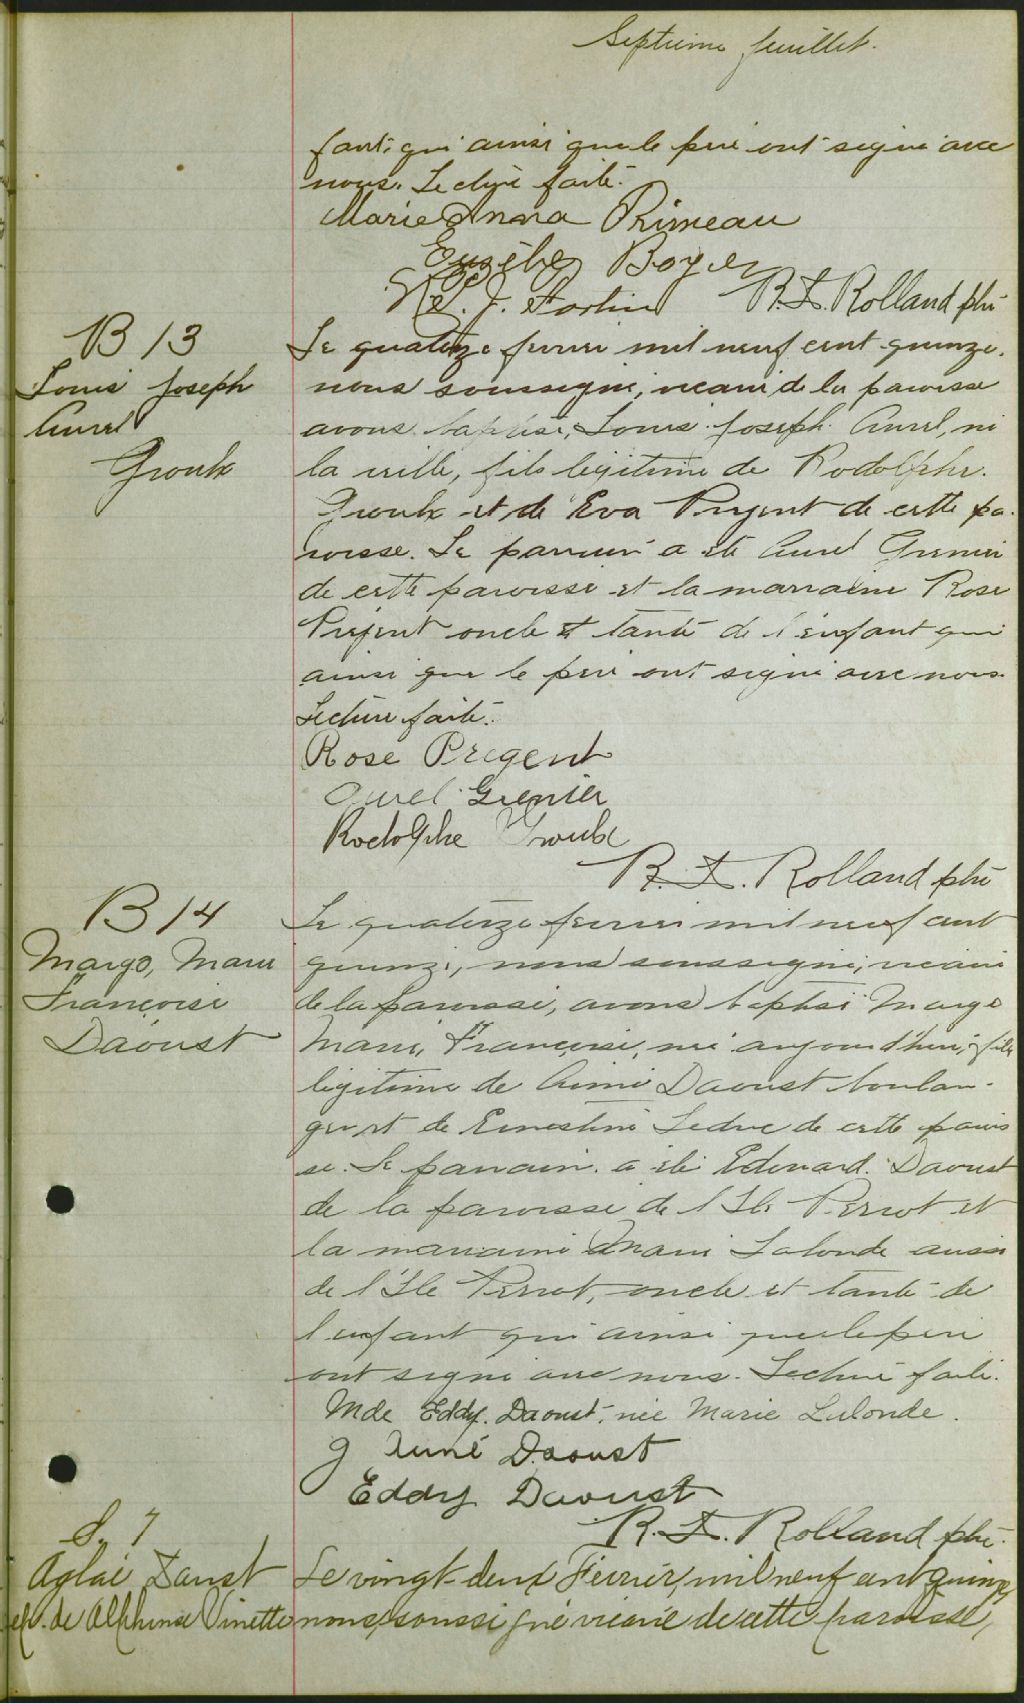 Septième feuillet.
fant, qui ainsi que le père ont signé avec
nous. Lecture faite.
Marie Anna Primeau
Eusèbe Boyer
J. Fortin R. L. Rolland ptre
B 13
Louis Joseph
Aurel
Groulx
Le quatorze février mil neuf cent quinze,
nous soussigné, vicaire de la paroisse
avons baptisé, Louis Joseph Aurel, né
la veille, fils légitime de Rodolphe
Groulx et de Eva Prejent de cette pa-
roisse. Le parrain a été Aurel Grenier
de cette paroisse et la marraine Rose
Prejent oncle et tante de l'enfant qui
ainsi que le père ont signé avec nous.
Lecture faite.
Rose Pregent
Aurel Grenier
Rodolphe Groulx
R. L. Rolland ptre
B 14
Margo, Marie
Françoise
Daoust
Le quatorze février mil neuf cent
quinze, nous soussigné, vicaire
de la paroisse, avons baptisé Margo
Marie, Françoise, née aujourd'hui, fille
légitime de Aimé Daoust boulan-
ger et de Ernestine Leduc de cette parois
se. Le parrain a été Edouard Daoust
de la paroisse de l'Ile Perrot et
la marraine Marie Lalonde aussi
de l'Ile Perrot, oncle et tante de
l'enfant qui ainsi que le père
ont signé avec nous. Lecture faite.
Mde Eddy Daoust, née Marie Lalonde.
J Aimé Daoust
Eddy Daoust
R. L. Rolland ptre.
S. 7
Aglaé Daust
ép. de Alphonse Vinette
Le vingt-deux Février, mil neuf cent quinze,
nous, soussigné vicaire de cette paroisse,